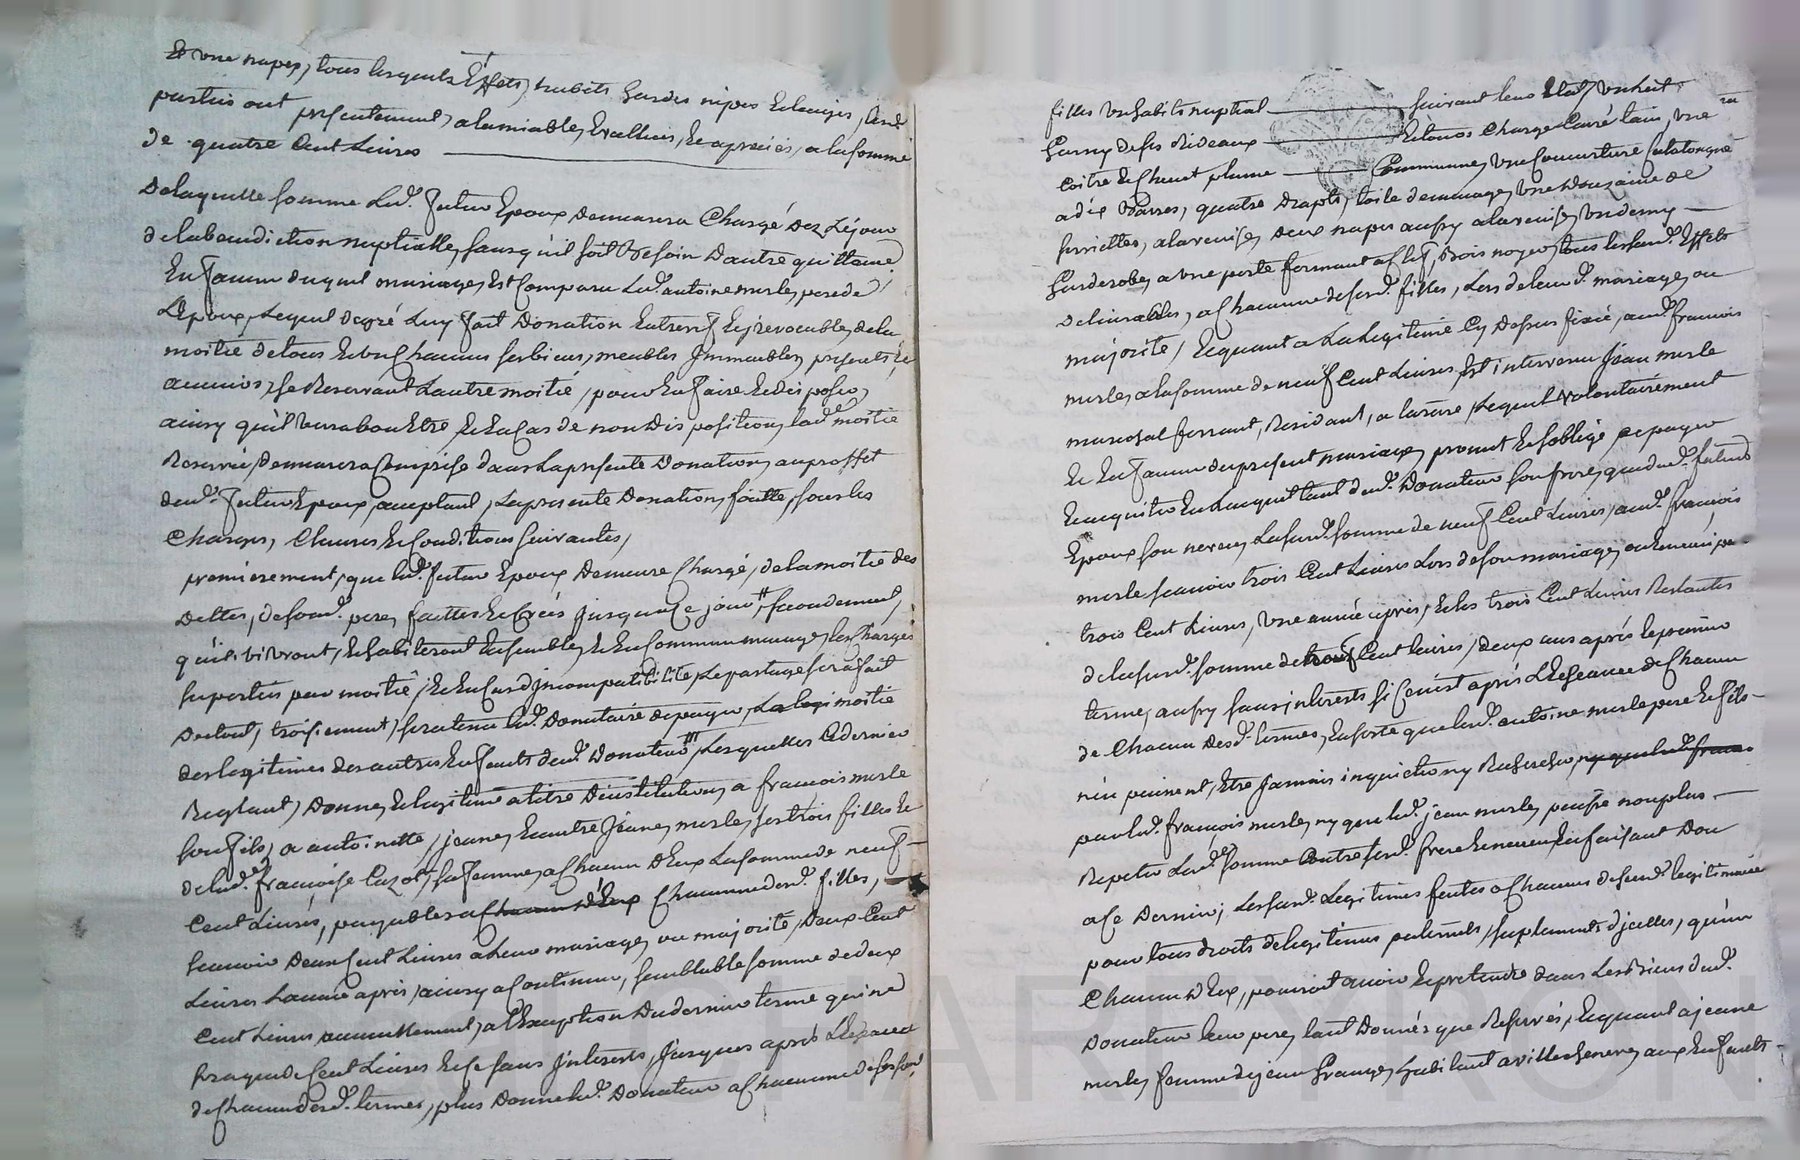 Et une nappe, tous lesquels Effets, habits hardes nipes Et linges, lesd.
parties ont presentement, alamiable, Evalluées, Et apreciés, a la somme
de quatre Cent Livres
De laquelle somme Led. futur Epoux Demeurera Chargé Dez Le jour
de la benediction nuptialle, sans qu'il soit Besoin D'autre quittance
En faveur duquel mariage, Est Comparu Led. antoine merle, pere de
L'Epoux, Lequel De gré Luy fait Donation Entrevif Et irrevocable, de la
moitié de tous Et un Chacuns ses biens, meubles Immeubles, presents Et
avenirs, se Reservant L'autre moitié, pour En faire Et disposer,
ainsy qu'il verra bon Etre, Et En Cas de non Disposition, lad. moitié
Reservée, Demeurera Comprise dans La presente Donation, au proffit
dud. futur Epoux, acceptant, La presente Donation, faitte, sous les
Charges, Clauses Et Conditions suivantes,
premierement, que led. futur Epoux Demeure Chargé, de la moitié des
Dettes, de sond. pere, faittes Et Créés jusqu'a Ce jour, secondement,
qu'ils vivront, Et habiteront Ensemble, Et En Commun menage, les Charges
suportées par moitié, Et En Cas d'Incompatibilité Le partage sera fait
De tout, troisiement, sera tenu led. Donataire de payer, La moitié
des legitimes des autres Enfants dud. Donateur, Lesquelles Ce dernier
Reglant, Donne, Et legitime a titre D'institution, a francois merle
son fils, a antoinette, jeanne, Et autre Jeanne, merle, ses trois filles Et
de lad. françoise Cazot, sa femme, a Chacun D'Eux La somme de neuf
Cent Livres, payables a Chacun D'Eux Chacune desd. filles,
scavoir Deux Cent Livres a Leur mariage, ou majorité, Deux Cent
Livres L'année après, ainsy a Continuer, semblable somme de deux
Cent Livres annuellement, a l'Exception Du dernier terme qui ne
sera que de Cent Livres Et Ce sans Interests, Jusques après L'Echeance
de Chacun desd. termes, plus Donne led. Donateur a Chacune de ses susd.
filles un habits nuptial suivant leur Etat, un heit
Garny de ses Rideaux Et tours Charge Carré lain, une
Coitre Et Chevet plume Commune, une Couverture Catalougne
a dix Barres, quatre Drapts, toile de menage, une Douzaine de
serviettes, a la venise, Deux napes aussy a la venise, un demy
Garderobe, a une porte fermant a Clef, Bois noyer, tous lesusd. Effets
Delivrables, a Chacune de sesd. filles, Lors de leurd. mariage, ou
majorité, Et quant a La Legitime Cy Dessus fixée, aud. francois
merle, a la somme de neuf Cent Livres, Est intervenu Jean merle
marechal ferrant, Residant, a Lequel volontairement
Et En faveur du present mariage, promet Et s'oblige de payer
Et acquiter En L'acquit tant dud. Donateur son frere, que dud. futur
Epoux son neveu, La susd. somme de neuf Cent Livres, aud. francois
merle scavoir trois Cent Livres Lors de son mariage, ou
trois Cent Livres, une année après, Et les trois Cent Livres Restantes
de la susd. somme de neuf Cent Livres, deux ans après le premier
terme, aussy sans interests si Ce n'est après L'Echeance de Chacun
de Chacun Desd. termes, En sorte que lesd. antoine merle pere Et fils
n'en puissent, Etre Jamais inquietés ny Recherchés, ny que led. franc
par led. françois merle, ny que led. jean merle, puisse non plus
Repeter Lad. somme Contre sesd. frere Et neveu, En faisant Don
a Ce Dernier, Les susd. Legitimes faites a Chacuns desusd. legitimaires
pour tous droits de legitimes paternels, suplements d'jcelles, qu'un
Chacun D'Eux, pouvoit avoir Et pretendre dans Les Biens dud.
Donateur leur pere, tant Donnés que Reservés, Et quant a jeanne
merle, femme de jean Grange, habitant a villechenve, aux Enfants